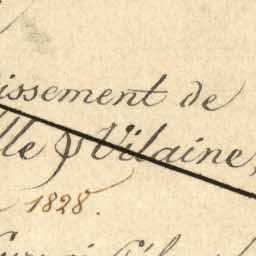 issement de
lle & Vilaine,
1828.